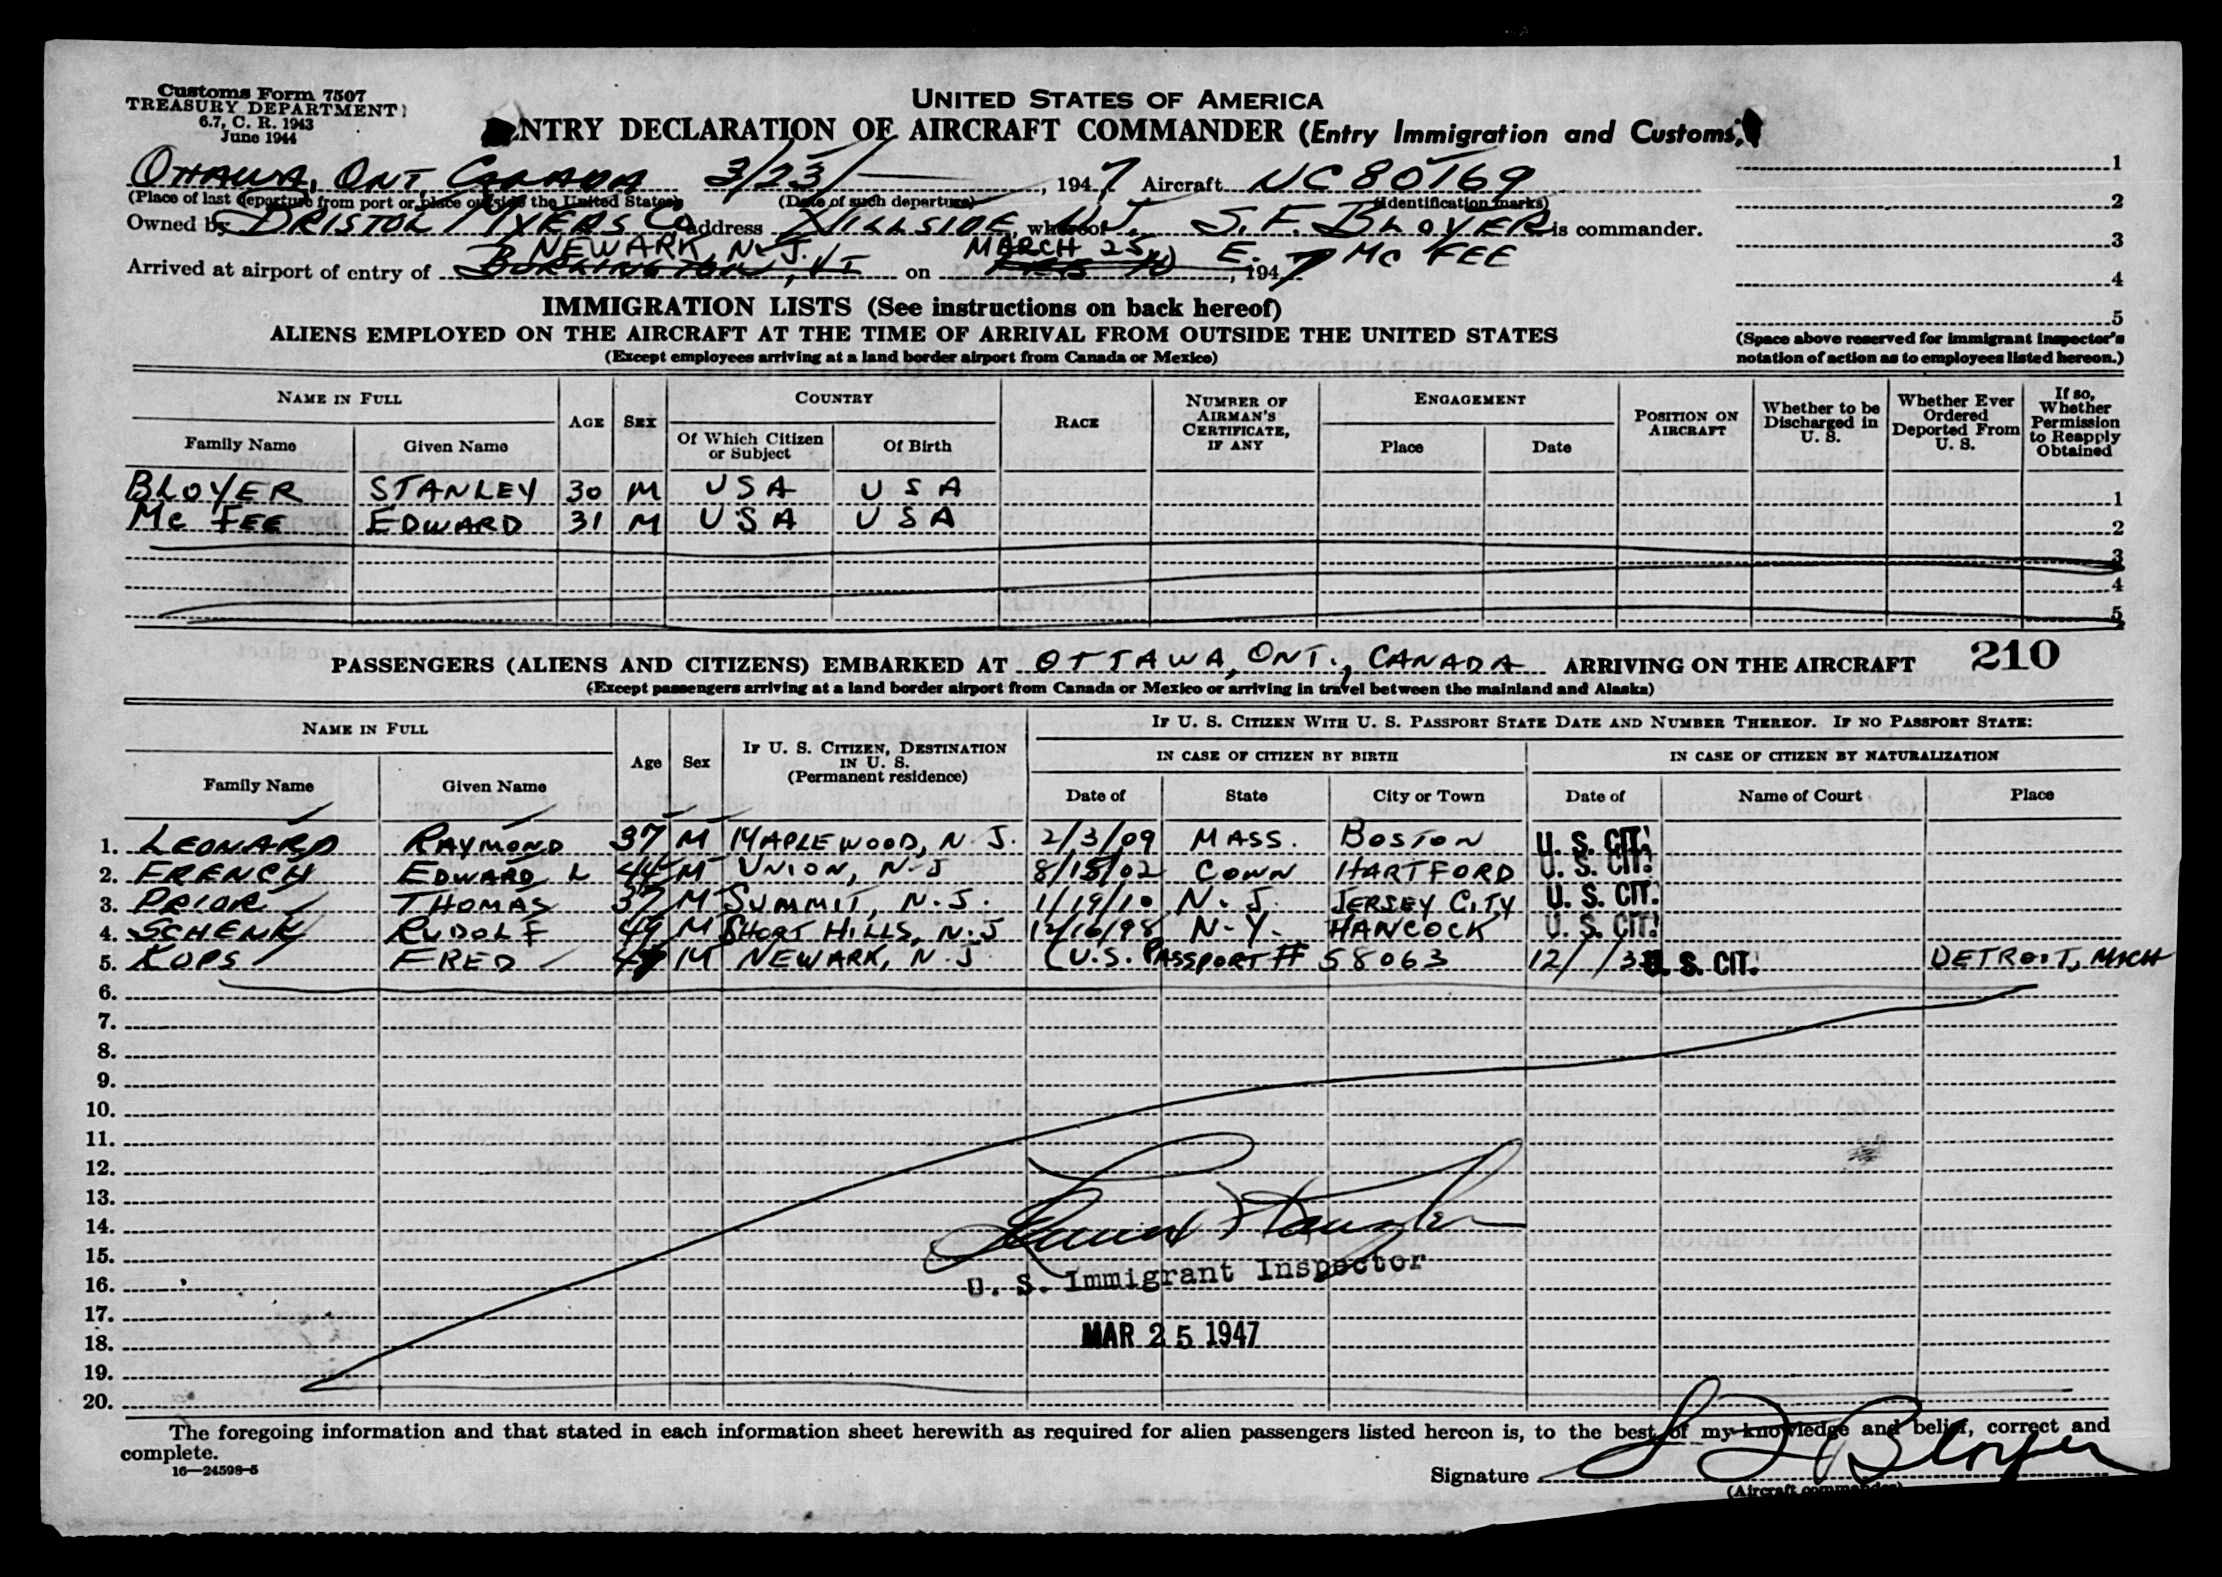 Customs Form 7507
TREASURY DEPARTMENT
6.7, C. R. 1943
June 1944
UNITED STATES OF AMERICA
ENTRY DECLARATION OF AIRCRAFT COMMANDER (Entry Immigration and Customs)
OTTAWA, ONT, CANADA 3/23/ , 1947 Aircraft NC80169
(Place of last departure from port or place outside the United States) (Date of such departure) (Identification marks)
Owned by BRISTOL MYERS Co address HILLSIDE, N.J. whereof S. F. BLOYER is commander.
NEWARK, N.J. MARCH 25 E. MC FEE
Arrived at airport of entry of BURLINGTON, VT on , 1947
1
2
3
4
5
(Space above reserved for immigrant inspector's notation of action as to employees listed hereon.)
IMMIGRATION LISTS (See instructions on back hereof)
ALIENS EMPLOYED ON THE AIRCRAFT AT THE TIME OF ARRIVAL FROM OUTSIDE THE UNITED STATES
(Except employees arriving at a land border airport from Canada or Mexico)
NAME IN FULL AGE SEX COUNTRY RACE NUMBER OF AIRMAN'S CERTIFICATE, IF ANY ENGAGEMENT POSITION ON AIRCRAFT Whether to be Discharged in U. S. Whether Ever Ordered Deported From U. S. If so, Whether Permission to Reapply Obtained
Family Name Given Name Of Which Citizen or Subject Of Birth Place Date
BLOYER STANLEY 30 M USA USA 1
Mc FEE EDWARD 31 M USA USA 2
3
4
5
PASSENGERS (ALIENS AND CITIZENS) EMBARKED AT OTTAWA, ONT., CANADA ARRIVING ON THE AIRCRAFT 210
(Except passengers arriving at a land border airport from Canada or Mexico or arriving in travel between the mainland and Alaska)
NAME IN FULL Age Sex IF U. S. CITIZEN, DESTINATION IN U. S. (Permanent residence) IF U. S. CITIZEN WITH U. S. PASSPORT STATE DATE AND NUMBER THEREOF. IF NO PASSPORT STATE:
IN CASE OF CITIZEN BY BIRTH IN CASE OF CITIZEN BY NATURALIZATION
Family Name Given Name Date of State City or Town Date of Name of Court Place
1. LEONARD RAYMOND 37 M MAPLEWOOD, N.J. 2/3/09 MASS. BOSTON U. S. CIT.
2. FRENCH EDWARD L 44 M UNION, N.J 8/15/02 CONN HARTFORD U. S. CIT.
3. PRIOR THOMAS 37 M SUMMIT, N.J. 1/19/10 N.J. JERSEY CITY U. S. CIT.
4. SCHENK RUDOLF 49 M SHORT HILLS, N.J 12/16/98 N.Y. HANCOCK U. S. CIT.
5. KOPS FRED M NEWARK, N.J. (U.S. PASSPORT # 58063 12/ /3 U. S. CIT. DETROIT, MICH
6.
7.
8.
9.
10.
11.
12.
13.
14.
15.
16.
17.
18.
19.
20.
U. S. Immigrant Inspector
MAR 25 1947
The foregoing information and that stated in each information sheet herewith as required for alien passengers listed hereon is, to the best of my knowledge and belief, correct and
complete.
16—24598-5
Signature S F Bloyer
(Aircraft commander)